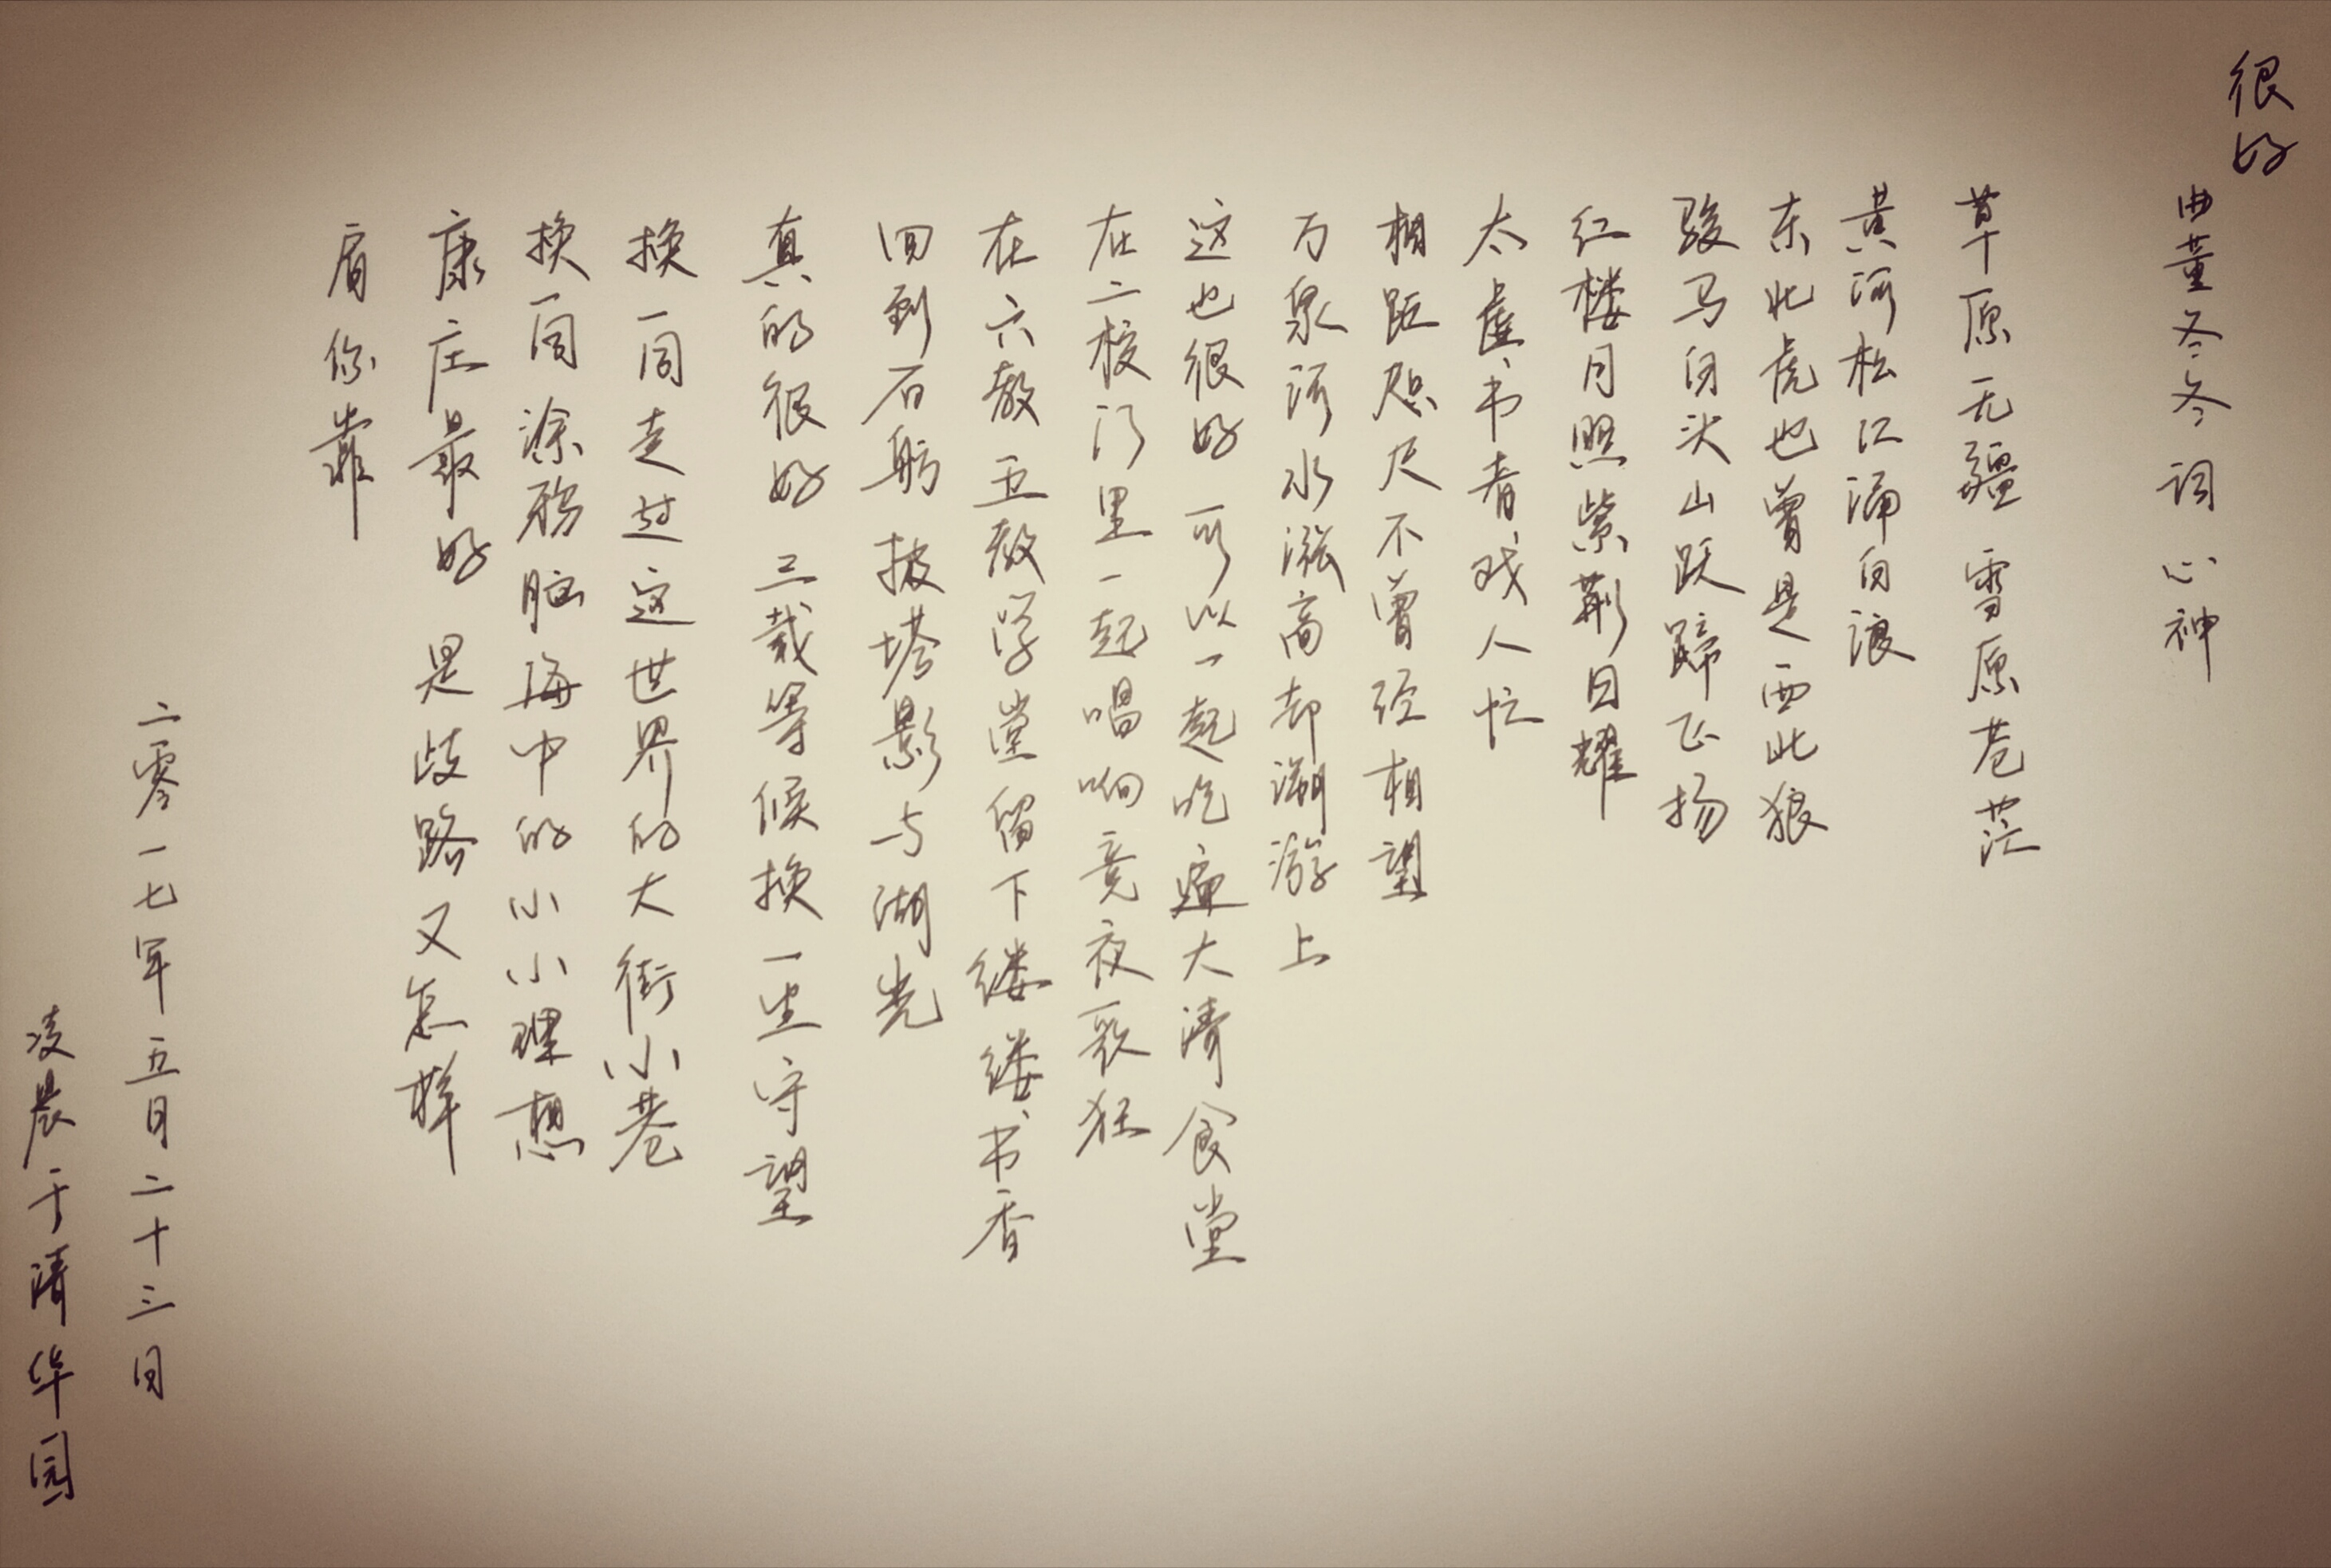 很好
曲董冬冬 词 心神
草原无疆 雪原苍茫
黄河松江涌白浪
东北虎也曾是西北狼
骏马白头山跃蹄飞扬
红楼月照紫荆日耀
太虚书斋戏人忙
相距咫尺不曾经相望
万泉河水涨高却溯游上
这也很好 可以一起吃遍大清食堂
在二校门里一起唱响竞夜歌狂
在六教五教学堂留下缕缕书香
回到石舫披塔影与湖光
真的很好 三载等候换一生守望
换一同走过这世界的大街小巷
换一同涂鸦脑海中的小小理想
康庄最好 是歧路又怎样
肩你靠
二零一七年五月二十三日
凌晨于清华园